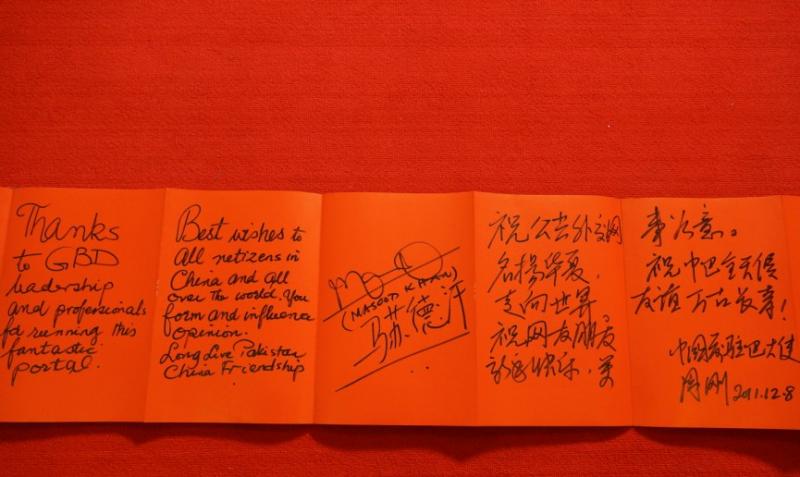 Thanks
to GBD
leadership
and professionals
for running this
fantastic
portal.
Best wishes to
all netizens in
China and all
over the world. You
form and influence
opinion.
Long Live Pakistan
China Friendship
(MASOOD KHAN)
马苏德汗
祝公共外交网
名扬华夏,
走向世界。
祝网友朋友
新年快乐,万
事如意。
祝中巴全天候
友谊万古长青!
中国前驻巴大使
周刚 2011.12.8